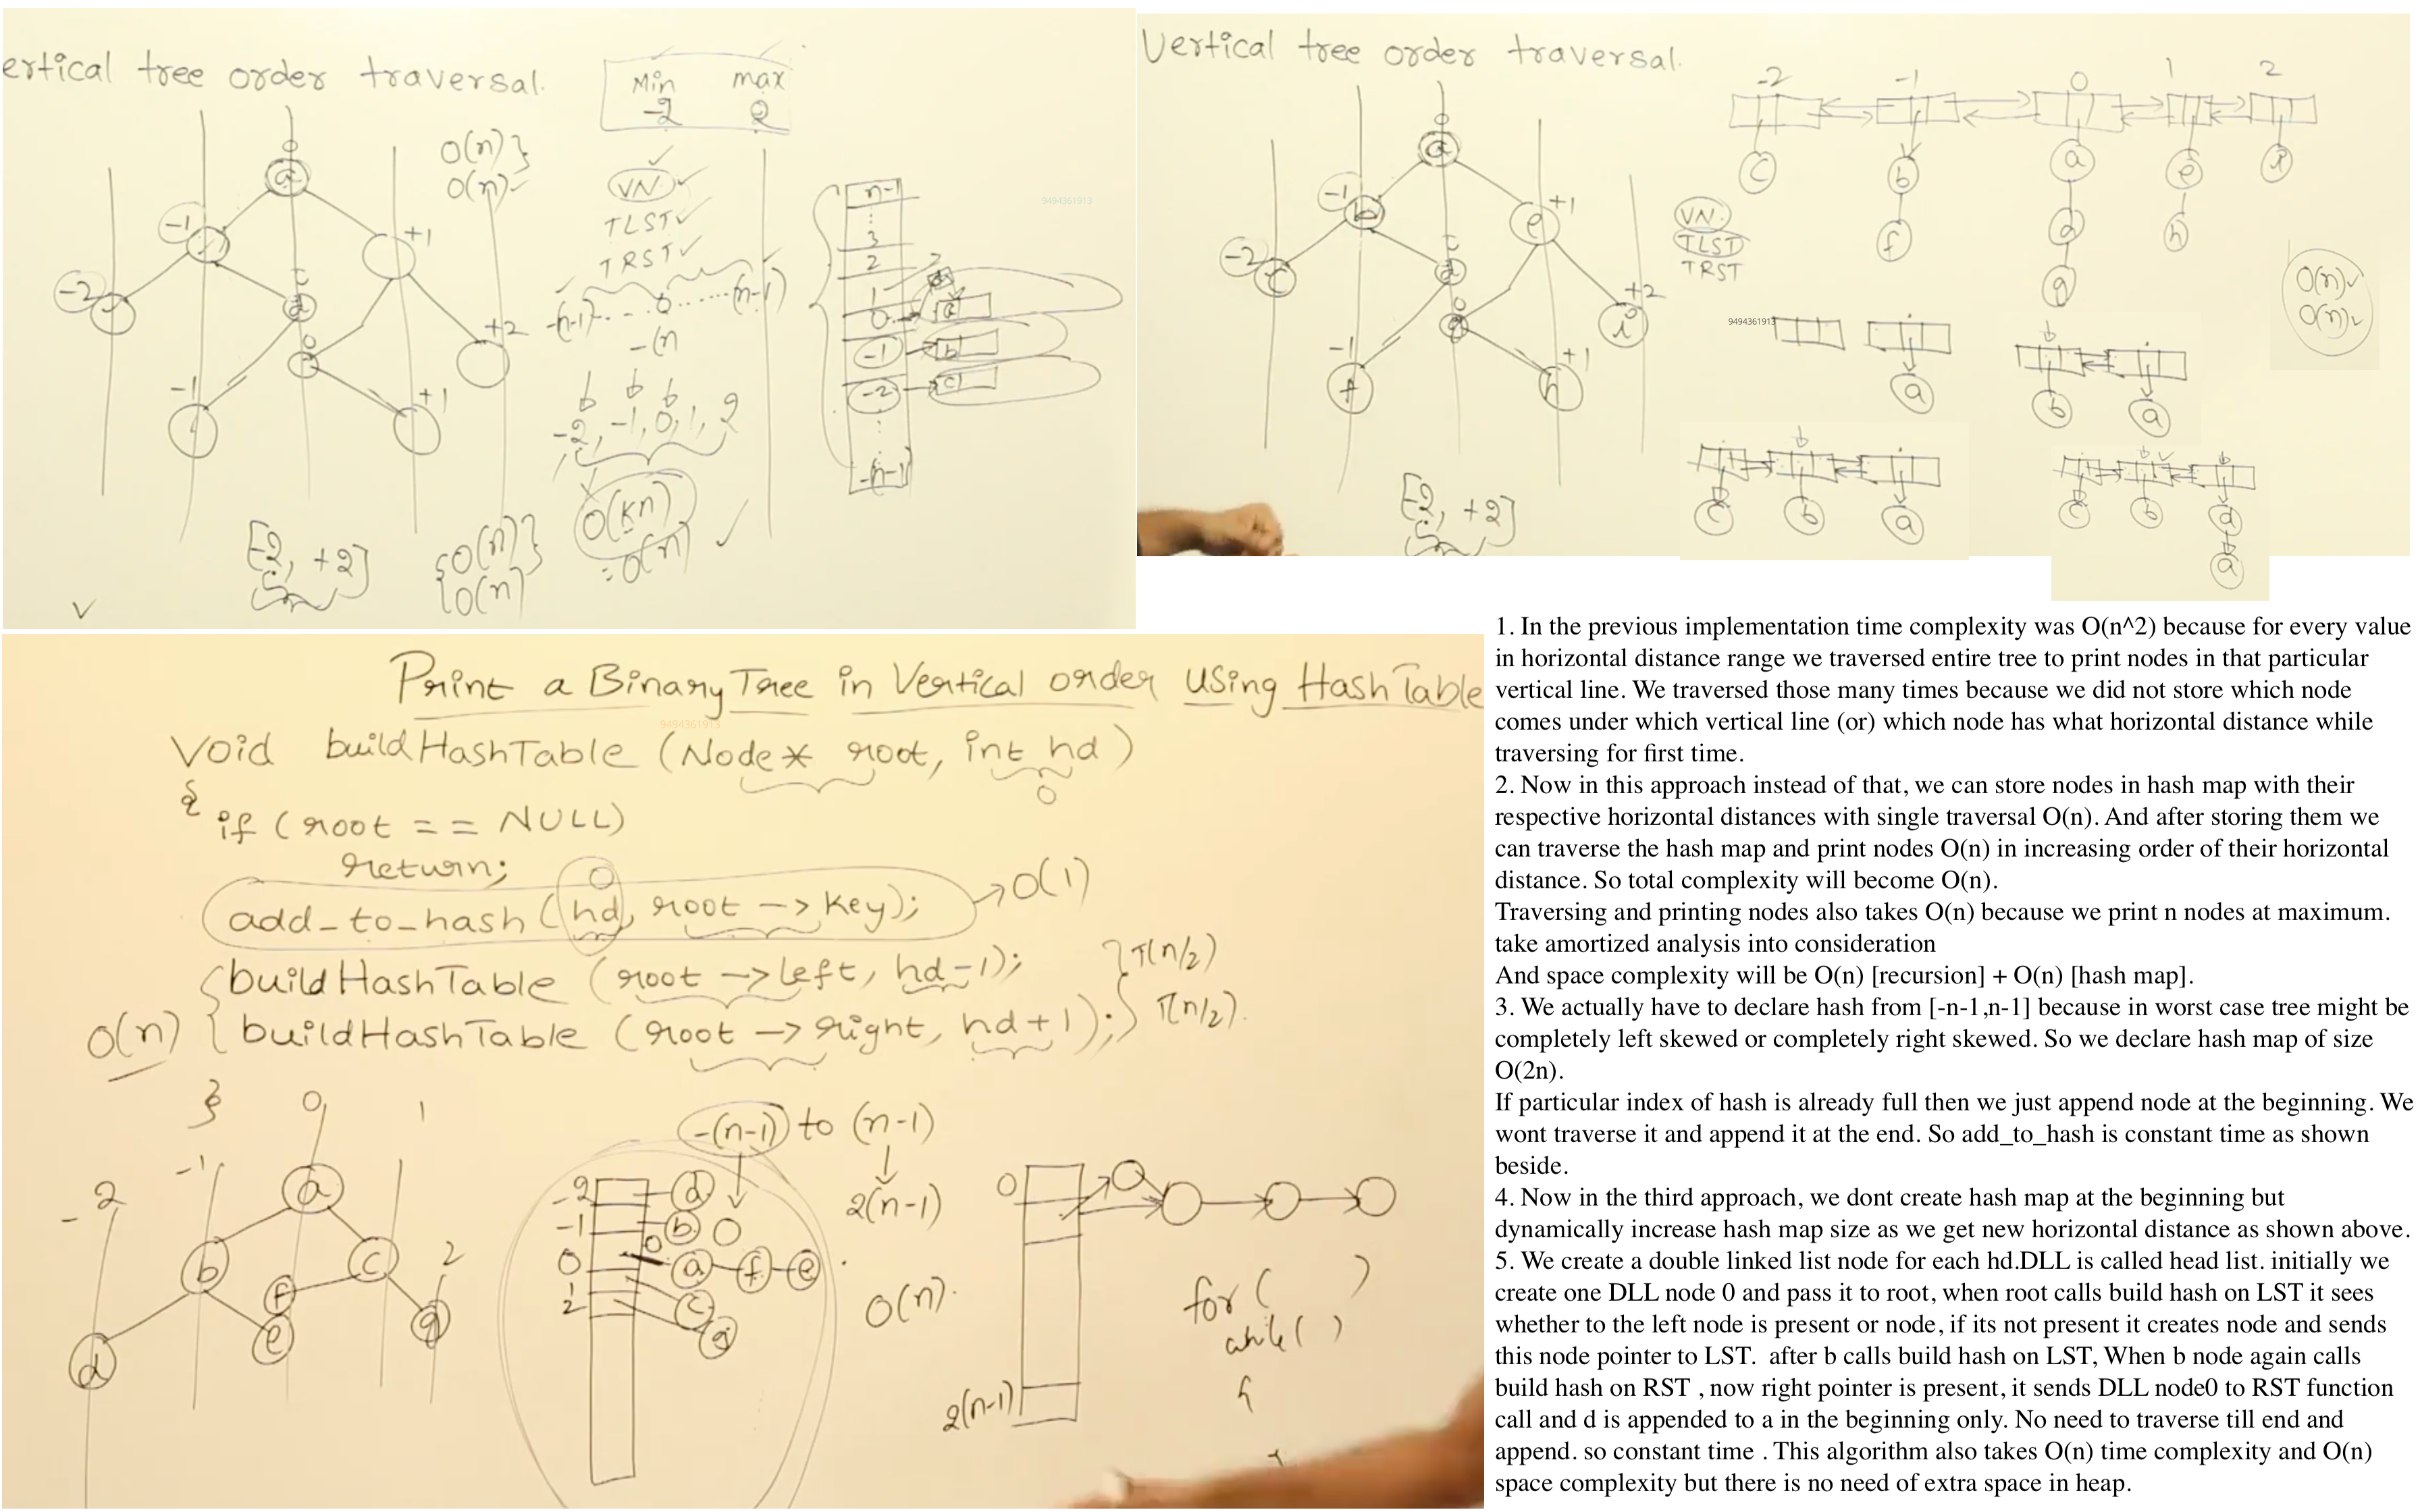 ertical tree order traversal.
Min max
-2 2
0
a
-1
+1
-2
d
+2
-1
+1
O(n)
O(n)
VN
TLST
TRST
-(n-1) - - - 0 ...... (n-1)
-(n
-2, -1, 0, 1, 2
O(kn)
= O(n)
[-2, +2]
{O(n)}
{O(n)
n-1
3
2
1
0
a
-1
b
-2
c
-(n-1)
9494361913
Vertical tree order traversal.
-2 -1 0 1 2
c b a e i
f d h
g
0
a
-1
b
e
+1
-2
c
d
g
+2
i
-1
f
+1
h
VN
TLST
TRST
O(n)
O(n)
9494361913
a
b a
c b a
c b d
a
[-2, +2]
Print a Binary Tree in Vertical order using HashTable
9494361913
Void buildHashTable (Node* root, int hd)
0
{
if (root == NULL)
return;
0
add_to_hash (hd, root -> key); → O(1)
buildHashTable (root -> left, hd-1); T(n/2)
O(n) { buildHashTable (root -> right, hd+1); T(n/2).
}
-2 -1 0 1 2
a
b c
f
d e g
-(n-1) to (n-1)
2(n-1)
O(n).
-2 d
-1 b
0 a f e
1 c
2 g
0
2(n-1)
for ( )
while ( )
{
1. In the previous implementation time complexity was O(n^2) because for every value
in horizontal distance range we traversed entire tree to print nodes in that particular
vertical line. We traversed those many times because we did not store which node
comes under which vertical line (or) which node has what horizontal distance while
traversing for first time.
2. Now in this approach instead of that, we can store nodes in hash map with their
respective horizontal distances with single traversal O(n). And after storing them we
can traverse the hash map and print nodes O(n) in increasing order of their horizontal
distance. So total complexity will become O(n).
Traversing and printing nodes also takes O(n) because we print n nodes at maximum.
take amortized analysis into consideration
And space complexity will be O(n) [recursion] + O(n) [hash map].
3. We actually have to declare hash from [-n-1,n-1] because in worst case tree might be
completely left skewed or completely right skewed. So we declare hash map of size
O(2n).
If particular index of hash is already full then we just append node at the beginning. We
wont traverse it and append it at the end. So add_to_hash is constant time as shown
beside.
4. Now in the third approach, we dont create hash map at the beginning but
dynamically increase hash map size as we get new horizontal distance as shown above.
5. We create a double linked list node for each hd.DLL is called head list. initially we
create one DLL node 0 and pass it to root, when root calls build hash on LST it sees
whether to the left node is present or node, if its not present it creates node and sends
this node pointer to LST.  after b calls build hash on LST, When b node again calls
build hash on RST , now right pointer is present, it sends DLL node0 to RST function
call and d is appended to a in the beginning only. No need to traverse till end and
append. so constant time . This algorithm also takes O(n) time complexity and O(n)
space complexity but there is no need of extra space in heap.